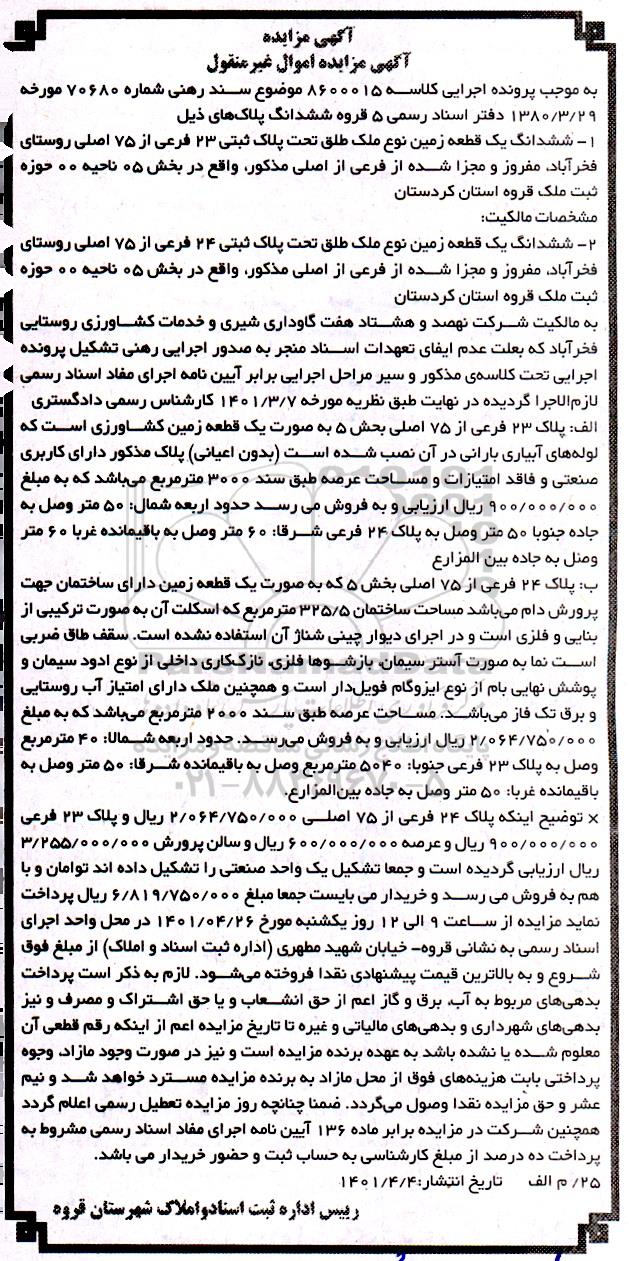 آگهی مزایده
آگهی مزایده اموال غیرمنقول
به موجب پرونده اجرایی کلاسه ۸۶۰۰۰۱۵ موضوع سند رهنی شماره ۷۰۶۸۰ مورخه
۱۳۸۰/۳/۲۹ دفتر اسناد رسمی ۵ قروه ششدانگ پلاک‌های ذیل
۱- ششدانگ یک قطعه زمین نوع ملک طلق تحت پلاک ثبتی ۲۳ فرعی از ۷۵ اصلی روستای
فخرآباد، مفروز و مجزا شده از فرعی از اصلی مذکور، واقع در بخش ۰۵ ناحیه ۰۰ حوزه
ثبت ملک قروه استان کردستان
مشخصات مالکیت:
۲- ششدانگ یک قطعه زمین نوع ملک طلق تحت پلاک ثبتی ۲۴ فرعی از ۷۵ اصلی روستای
فخرآباد، مفروز و مجزا شده از فرعی از اصلی مذکور، واقع در بخش ۰۵ ناحیه ۰۰ حوزه
ثبت ملک قروه استان کردستان
به مالکیت شرکت نهصد و هشتاد هفت گاوداری شیری و خدمات کشاورزی روستایی
فخرآباد که بعلت عدم ایفای تعهدات اسناد منجر به صدور اجرایی رهنی تشکیل پرونده
اجرایی تحت کلاسه‌ی مذکور و سیر مراحل اجرایی برابر آیین نامه اجرای مفاد اسناد رسمی
لازم‌الاجرا گردیده در نهایت طبق نظریه مورخه ۱۴۰۱/۳/۷ کارشناس رسمی دادگستری
الف: پلاک ۲۳ فرعی از ۷۵ اصلی بحش ۵ به صورت یک قطعه زمین کشاورزی است که
لوله‌های آبیاری بارانی در آن نصب شده است (بدون اعیانی) پلاک مذکور دارای کاربری
صنعتی و فاقد امتیازات و مساحت عرصه طبق سند ۳۰۰۰ مترمربع می‌باشد که به مبلغ
۹۰۰/۰۰۰/۰۰۰ ریال ارزیابی و به فروش می رسد حدود اربعه شمال: ۵۰ متر وصل به
جاده جنوبا ۵۰ متر وصل به پلاک ۲۴ فرعی شرقا: ۶۰ متر وصل به باقیمانده غربا ۶۰ متر
وصل به جاده بین المزارع
ب: پلاک ۲۴ فرعی از ۷۵ اصلی بخش ۵ که به صورت یک قطعه زمین دارای ساختمان جهت
پرورش دام می‌باشد مساحت ساختمان ۳۲۵/۵ مترمربع که اسکلت آن به صورت ترکیبی از
بنایی و فلزی است و در اجرای دیوار چینی شناژ آن استفاده نشده است. سقف طاق ضربی
است نما به صورت آستر سیمان، بازشوها فلزی، نازک‌کاری داخلی از نوع ادود سیمان و
پوشش نهایی بام از نوع ایزوگام فویل‌دار است و همچنین ملک دارای امتیاز آب روستایی
و برق تک فاز می‌باشد. مساحت عرصه طبق سند ۲۰۰۰ مترمربع می‌باشد که به مبلغ
۲/۰۶۴/۷۵۰/۰۰۰ ریال ارزیابی و به فروش می‌رسد. حدود اربعه شمالا: ۴۰ مترمربع
وصل به پلاک ۲۳ فرعی جنوبا: ۵۰۴۰ مترمربع وصل به باقیمانده شرقا: ۵۰ متر وصل به
باقیمانده غربا: ۵۰ متر وصل به جاده بین‌المزارع.
× توضیح اینکه پلاک ۲۴ فرعی از ۷۵ اصلی ۲/۰۶۴/۷۵۰/۰۰۰ ریال و پلاک ۲۳ فرعی
۹۰۰/۰۰۰/۰۰۰ ریال و عرصه ۶۰۰/۰۰۰/۰۰۰ ریال و سالن پرورش ۳/۲۵۵/۰۰۰/۰۰۰
ریال ارزیابی گردیده است و جمعا تشکیل یک واحد صنعتی را تشکیل داده اند توامان و با
هم به فروش می رسد و خریدار می بایست جمعا مبلغ ۶/۸۱۹/۷۵۰/۰۰۰ ریال پرداخت
نماید مزایده از ساعت ۹ الی ۱۲ روز یکشنبه مورخ ۱۴۰۱/۰۴/۲۶ در محل واحد اجرای
اسناد رسمی به نشانی قروه- خیابان شهید مطهری (اداره ثبت اسناد و املاک) از مبلغ فوق
شروع و به بالاترین قیمت پیشنهادی نقدا فروخته می‌شود. لازم به ذکر است پرداخت
بدهی‌های مربوط به آب، برق و گاز اعم از حق انشعاب و یا حق اشتراک و مصرف و نیز
بدهی‌های شهرداری و بدهی‌های مالیاتی و غیره تا تاریخ مزایده اعم از اینکه رقم قطعی آن
معلوم شده یا نشده باشد به عهده برنده مزایده است و نیز در صورت وجود مازاد، وجوه
پرداختی بابت هزینه‌های فوق از محل مازاد به برنده مزایده مسترد خواهد شد و نیم
عشر و حق مزایده نقدا وصول می‌گردد. ضمنا چنانچه روز مزایده تعطیل رسمی اعلام گردد
همچنین شرکت در مزایده برابر ماده ۱۳۶ آیین نامه اجرای مفاد اسناد رسمی مشروط به
پرداخت ده درصد از مبلغ کارشناسی به حساب ثبت و حضور خریدار می باشد.
۲۵/ م الف تاریخ انتشار:۱۴۰۱/۴/۴
رییس اداره ثبت اسنادواملاک شهرستان قروه
ParsNamadData
۰۲۱-۸۸۳۴۹۶۷۰-۵